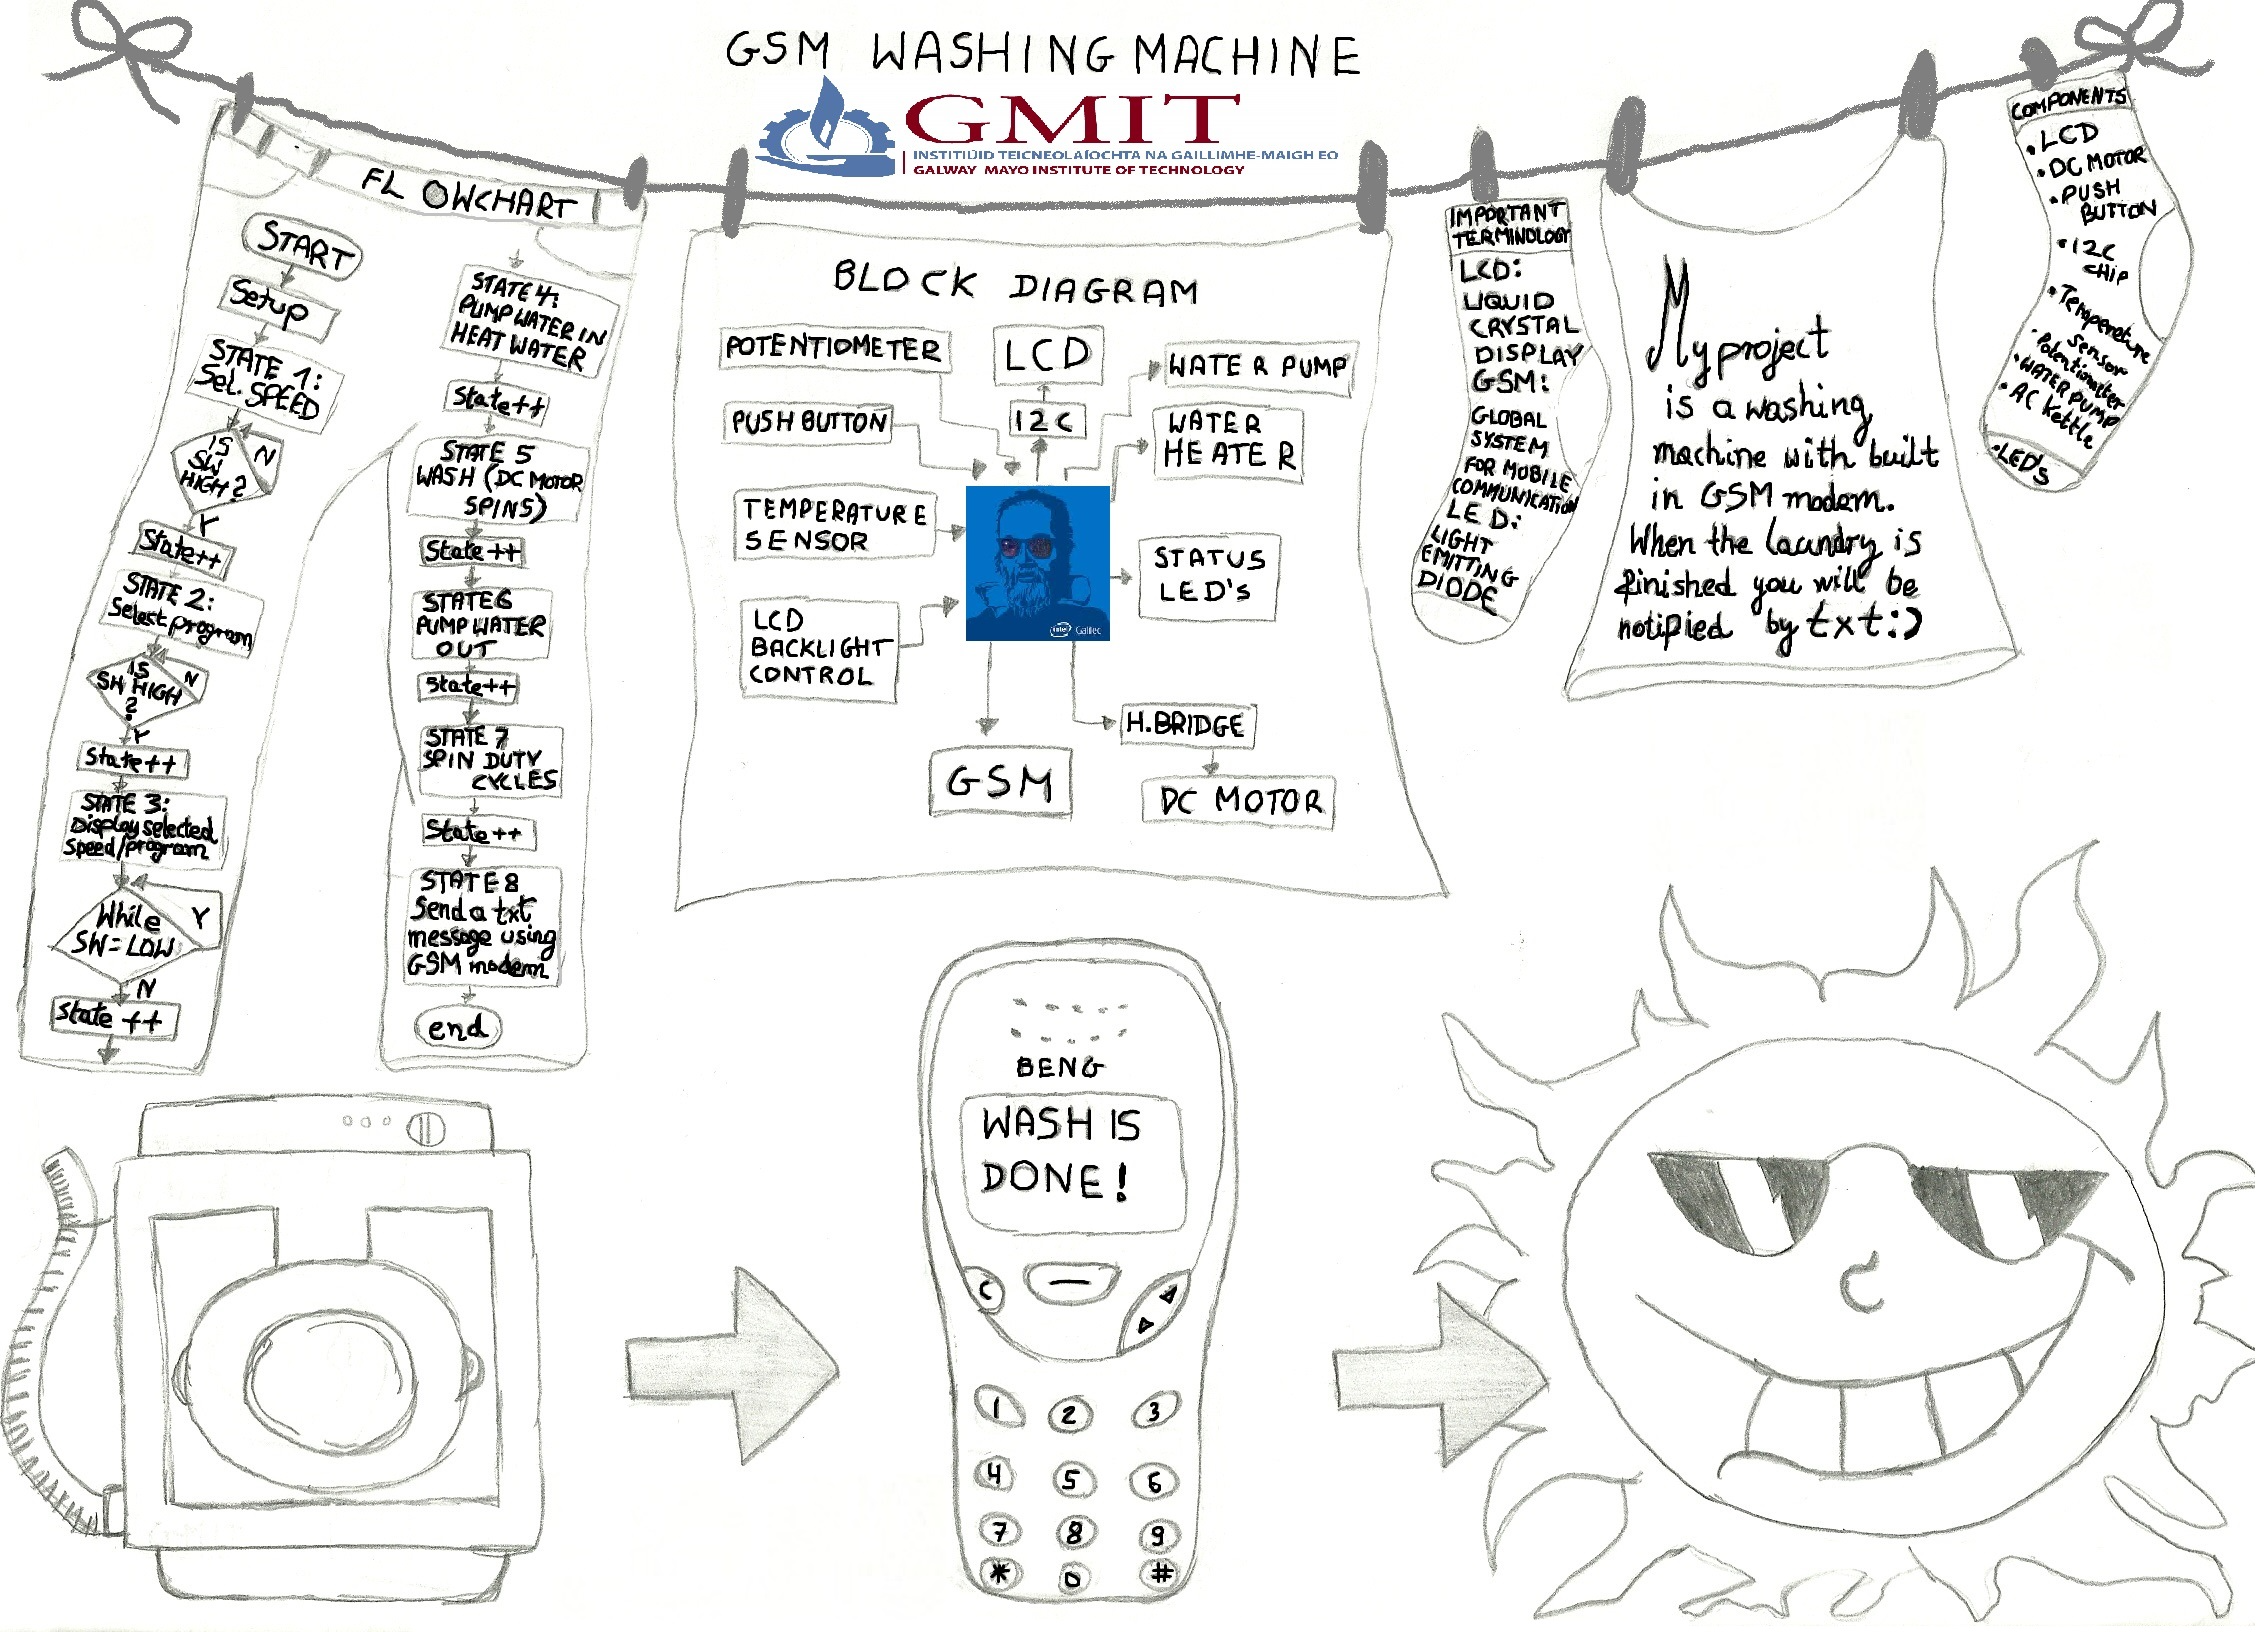 GSM WASHING MACHINE
GMIT
INSTITIÚID TEICNEOLAÍOCHTA NA GAILLIMHE-MAIGH EO
GALWAY MAYO INSTITUTE OF TECHNOLOGY
FLOWCHART
START
Setup
STATE 1:
Sel. SPEED
IS
SW
HIGH?
N
Y
State++
STATE 2:
Select program
IS
SW HIGH
?
N
Y
State++
STATE 3:
Display selected
Speed/program
While
SW=LOW
Y
N
State ++
STATE 4:
PUMP WATER IN
HEAT WATER
State++
STATE 5
WASH (DC MOTOR
SPINS)
State++
STATE 6
PUMP WATER
OUT
State++
STATE 7
SPIN DUTY
CYCLES
State++
STATE 8
Send a txt
message using
GSM modem
end
BLOCK DIAGRAM
POTENTIOMETER
LCD
WATER PUMP
PUSH BUTTON
I2C
WATER
HEATER
TEMPERATURE
SENSOR
intel Galileo
STATUS
LED's
LCD
BACKLIGHT
CONTROL
H.BRIDGE
GSM
DC MOTOR
IMPORTANT
TERMINOLOGY
LCD:
LIQUID
CRYSTAL
DISPLAY
GSM:
GLOBAL
SYSTEM
FOR MOBILE
COMMUNICATION
LED:
LIGHT
EMITTING
DIODE
My project
is a washing
machine with built
in GSM modem.
When the laundry is
finished you will be
notified by txt:)
COMPONENTS
• LCD
• DC MOTOR
• PUSH
BUTTON
• I2C
CHIP
• Temperature
sensor
• Potentiometer
• WATER PUMP
• AC Kettle
• LED's
BENG
WASH IS
DONE!
C
1 2 3
4 5 6
7 8 9
* 0 #